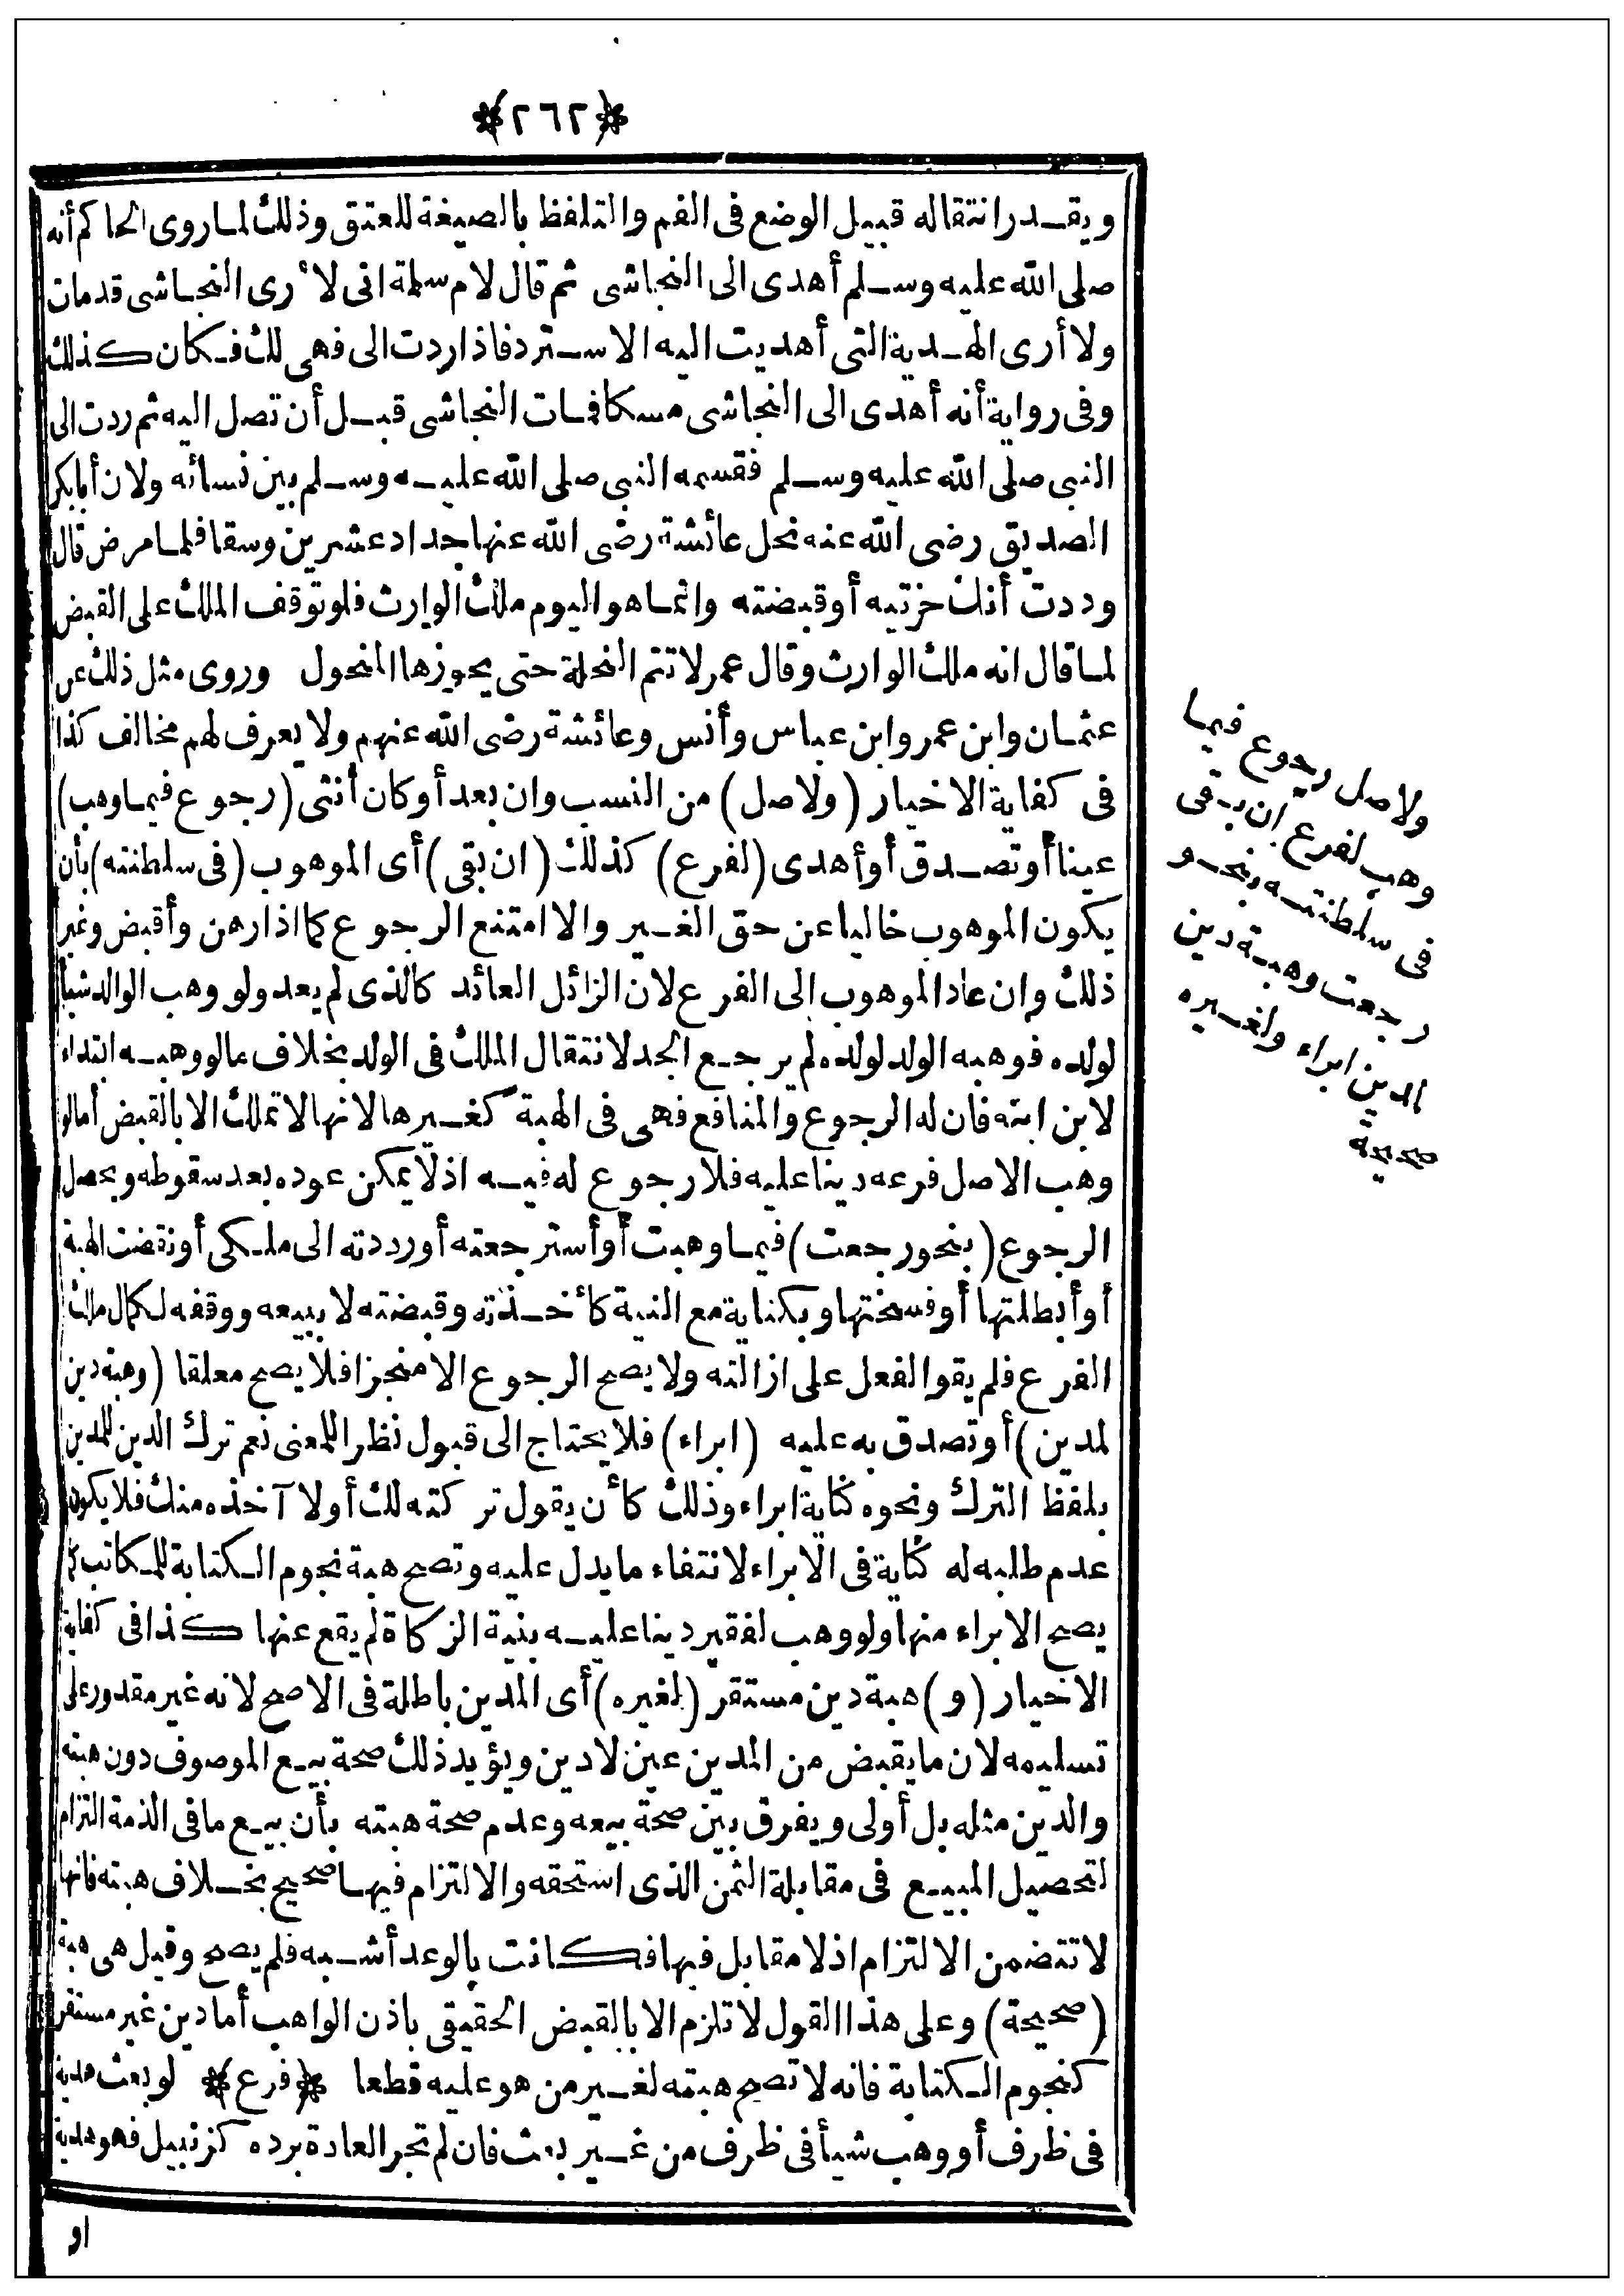 ٢٦٢
ويقدر انتقاله قبيل الوضع فى الفم والتلفظ بالصيغة للعتق وذلك لما روى الحاكم أنه
صلى الله عليه وسلم أهدى الى النجاشى ثم قال لام سلمة انى لأرى النجاشى قدمات
ولا أرى الهدية التى أهديت اليه الا ستردفاذا ردت الى فهى لك فكان كذلك
وفى رواية أنه أهدى الى النجاشى مسكافات النجاشى قبل أن تصل اليه ثم ردت الى
النبى صلى الله عليه وسلم فقسمه النبى صلى الله عليه وسلم بين نسائه ولان أبابكر
الصديق رضى الله عنه نحل عائشة رضى الله عنها جداد عشرين وسقا فلما مرض قال
وددت أنك حزتيه أوقبضته وانما هو اليوم ملك الوارث فلو توقف الملك على القبض
لما قال انه ملك الوارث وقال عمر لا تتم النحلة حتى يحوزها المنحول وروى مثل ذلك عن
عثمان وابن عمر وابن عباس وأنس وعائشة رضى الله عنهم ولا يعرف لهم مخالف كذا
فى كفاية الاخيار (ولاصل) من النسب وان بعد أو كان أنثى (رجوع فيما وهب)
عينا أو تصدق أو أهدى (لفرع) كذلك (ان بقى) أى الموهوب (فى سلطنته) بأن
يكون الموهوب خاليا عن حق الغير والا امتنع الرجوع كما اذا رهن وأقبض وغير
ذلك وان عاد الموهوب إلى الفرع لان الزائل العائد كالذى لم يعد ولو وهب الوالد شيأ
لولده فوهبه الولد لولده لم يرجع الجد لانتقال الملك فى الولد بخلاف مالو وهبه ابتداء
لابن ابنه فان له الرجوع والمنافع فهى فى الهبة كغيرها لانها لا تملك الا بالقبض أمالو
وهب الاصل فرعه دينا عليه فلا رجوع له فيه اذ لا يمكن عوده بعد سقوطه ويحصل
الرجوع (بنحو رجعت) فيما وهبت أو أسترجعته أو رددته الى ملكى أو نقضت الهبة
أو أبطلتها أو فسختها وبكناية مع النية كأخذته وقبضته لا ببيعه ووقفه لكمال ملك
الفرع فلم يقو الفعل على ازالته ولا يصح الرجوع الا منجزا فلا يصح معلقا (وهبة دين
لمدين) أو تصدق به عليه (ابراء) فلا يحتاج الى قبول نظرا للمعنى نعم ترك الدين للمدين
بلفظ الترك ونحوه كناية ابراء وذلك كأن يقول تركته لك أولا آخذه منك فلا يكون
عدم طلبه له كناية فى الابراء لانتفاء ما يدل عليه وتصح هبة نجوم الكتابة للمكاتب كما
يصح الابراء منها ولو وهب لفقير دينا عليه بنية الزكاة لم يقع عنها كذا فى كفاية
الاخيار (و) هبة دين مستقر (لغيره) أى المدين باطلة فى الاصح لانه غير مقدور على
تسليمه لان ما يقبض من المدين عين لا دين ويؤيد ذلك صحة بيع الموصوف دون هبته
والدين مثله بل أولى ويفرق بين صحة بيعه وعدم صحة هبته بأن بيع ما فى الذمة التزام
لتحصيل المبيع فى مقابلة الثمن الذى استحقه والالتزام فيها صحيح بخلاف هبته فانها
لا تتضمن الالتزام اذ لا مقابل فيها فكانت بالوعد أشبه فلم يصح وقيل هى هبة
(صحيحة) وعلى هذا القول لا تلزم الا بالقبض الحقيقى باذن الواهب أما دين غير مستقر
كنجوم الكتابة فانه لا تصح هبته لغير من هو عليه قطعا (فرع) لو بعث هدية
فى ظرف أو وهب شيأ فى ظرف من غير بعث فان لم تجر العادة برده كزنبيل فهو هدية
او
ولاصل رجوع فيما
وهب لفرع ان بقى
فى سلطنته بنحو
رجعت وهبة دين
لمدين ابراء ولغيره
صحيحة